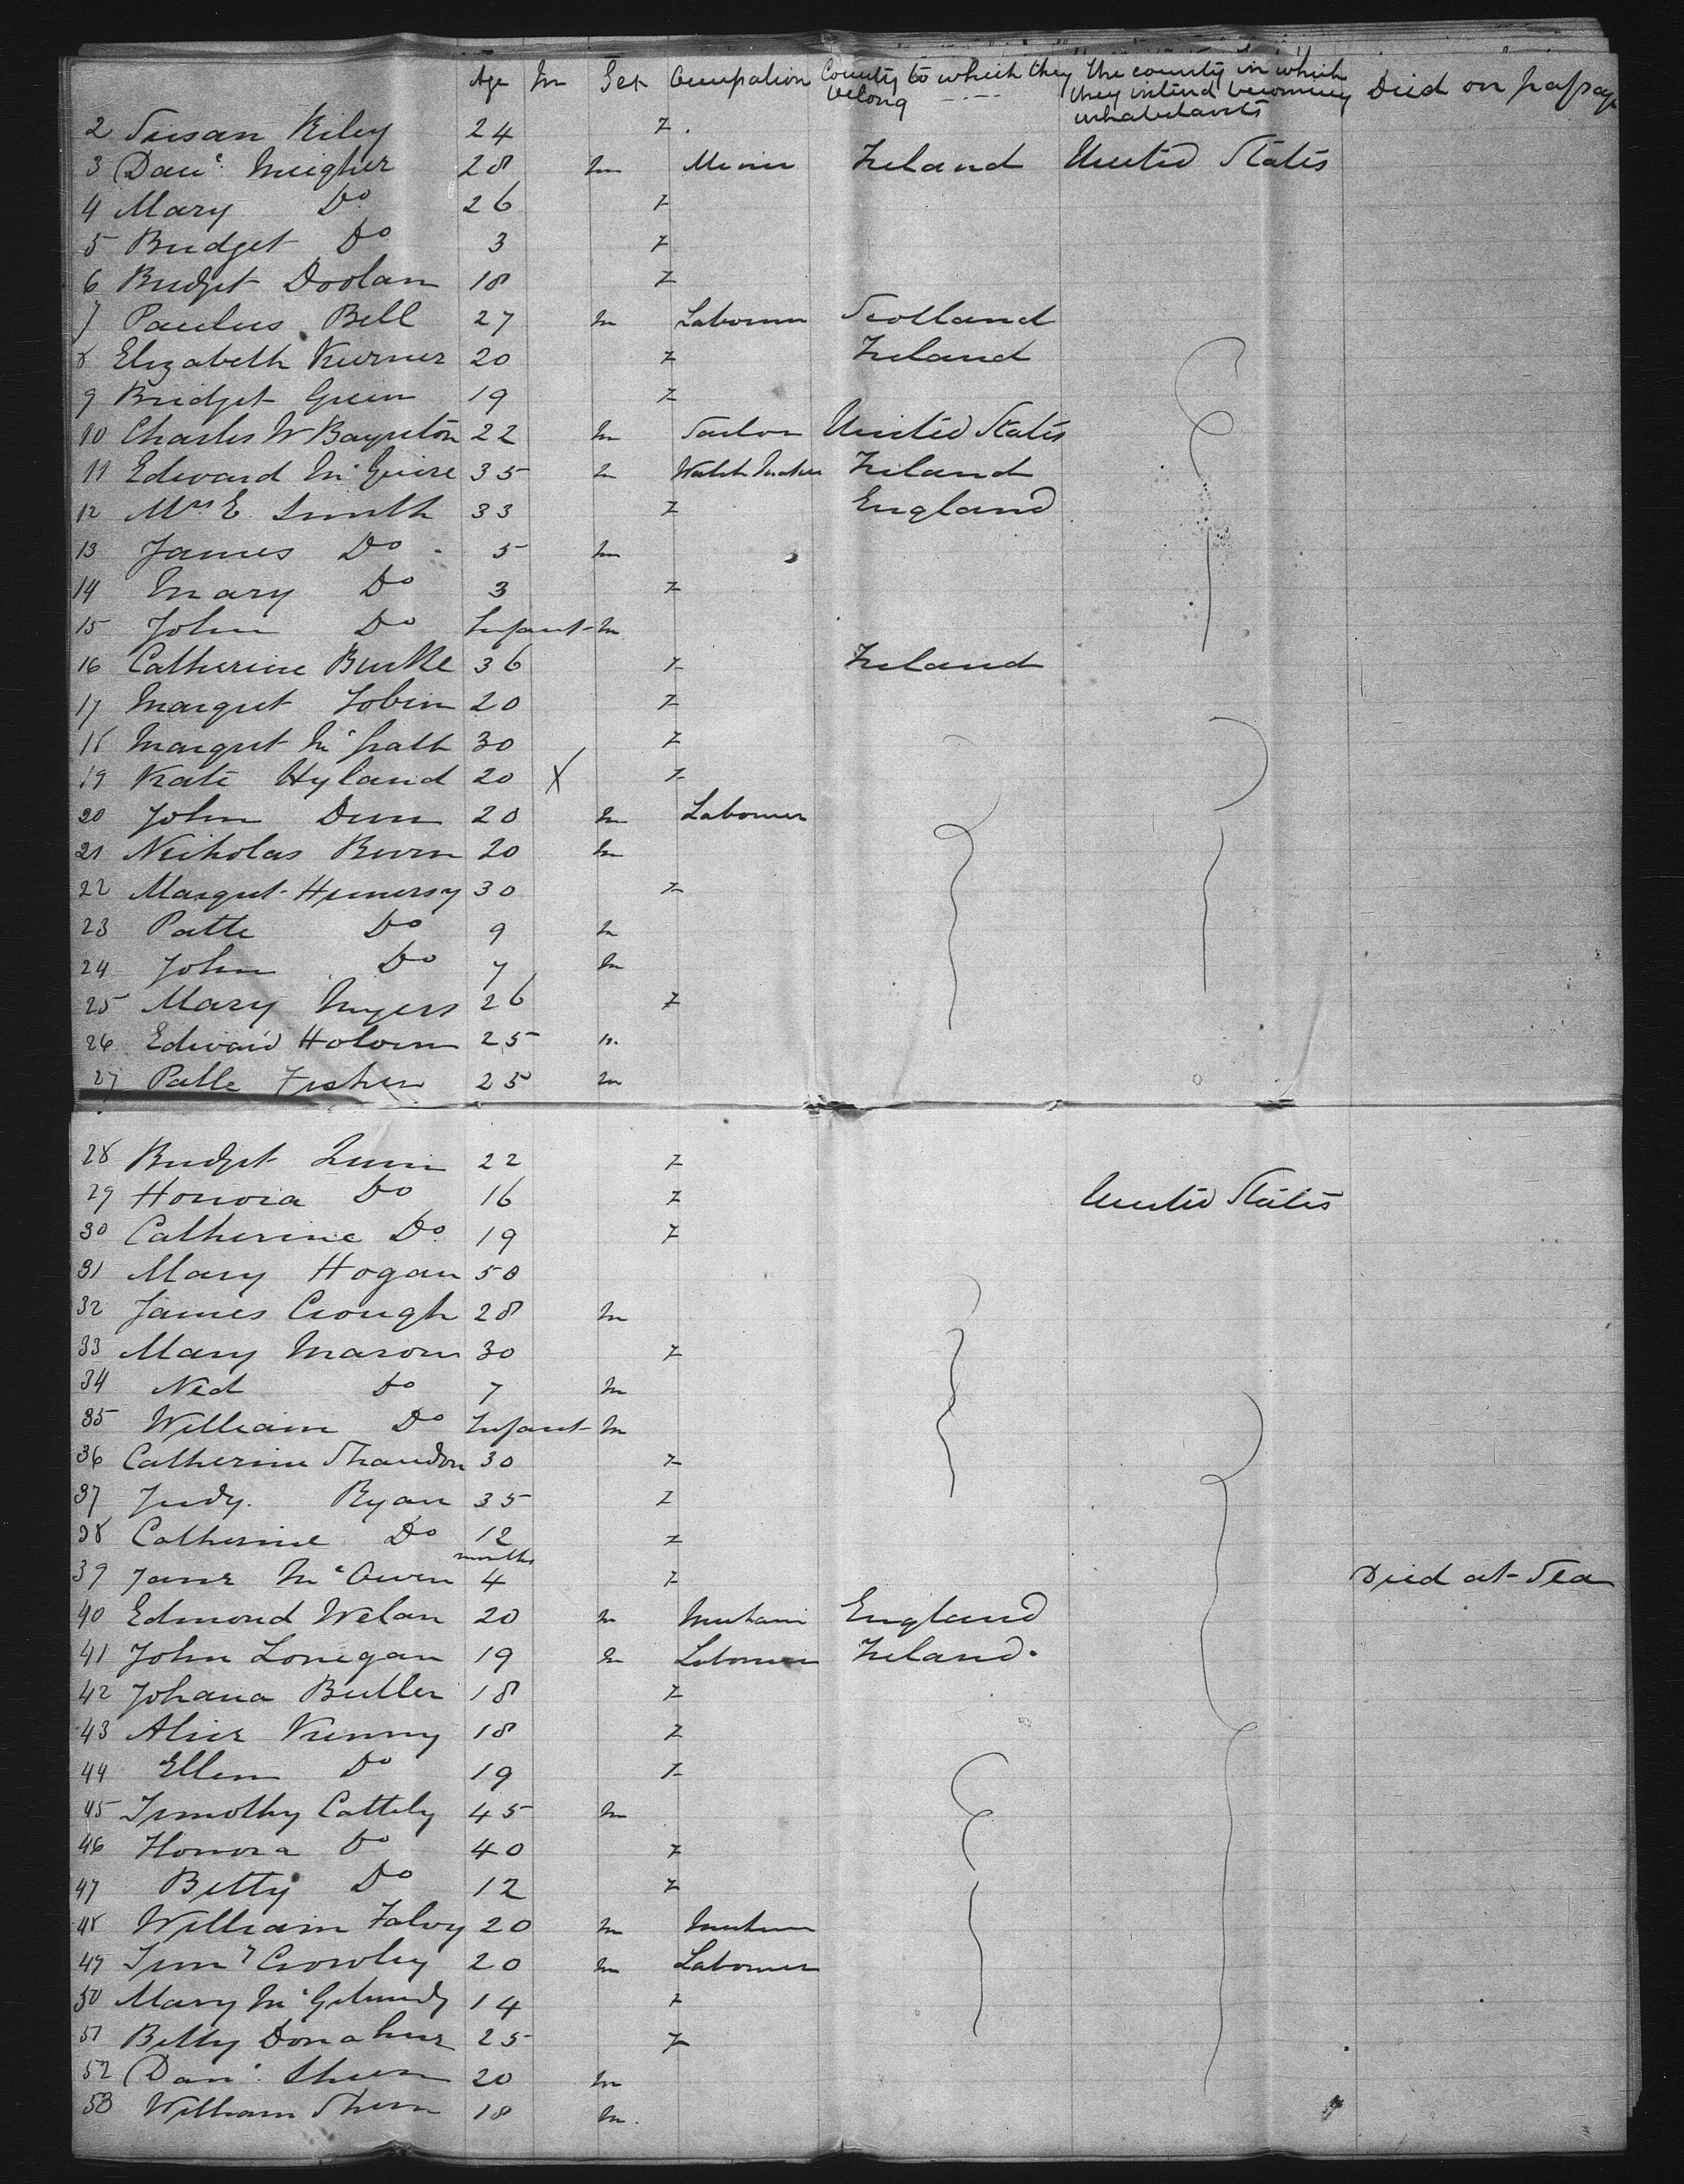 Age M Sex Occupation County to which they belong The county in which they intend becoming inhabitants Died on passage
2 Susan Riley 24 F
3 Danl Meagher 28 M Ireland United States
4 Mary Do 26 F
5 Bridget Do 3 F
6 Bridget Doolan 18 F
7 Paulus Bell 27 M Labourer Scotland
8 Elizabeth 20 F Ireland
9 Bridget Green 19 F
10 Charles W Boynton 22 M Sailor United States
11 Edward McGuire 35 M Watch Maker Ireland
12 Mrs E Smith 33 F England
13 James Do 5 M
14 Mary Do 3 F
15 John Do Infant M
16 Catherine Burke 36 F Ireland
17 Margret Tobin 20 F
18 Margret McGrath 30 F
19 Kate Hyland 20 X F
20 John Dunn 20 M Labourer
21 Nicholas Burn 20 M
22 Margret 30 F
23 Patk Do 9 M
24 John Do 7 M
25 Mary Myers 26 F
26 Edward 25 M
27 Patk Fisher 25 M
28 Bridget Quin 22 F
29 Honora Do 16 F United States
30 Catherine Do 19 F
31 Mary Hogan 50
32 James Crough 28 M
33 Mary Mason 30 F
34 Ned Do 7 M
35 William Do Infant M
36 Catherine 30 F
37 Judy Ryan 35 F
38 Catherine Do 12 F
39 Jane McOwen months 4 F Died at Sea
40 Edmond Welan 20 M England
41 John Lonegan 19 M Labourer Ireland
42 Johana Butler 18 F
43 Alice Kenny 18 F
44 Ellen Do 19 F
45 Timothy Cattely 45 M
46 Honora Do 40 F
47 Betty Do 12 F
48 William Falvy 20 M
49 Timy Crowley 20 M Labourer
50 Mary 14 F
51 Betty Donahue 25 F
52 Danl 20 M
53 William 18 M